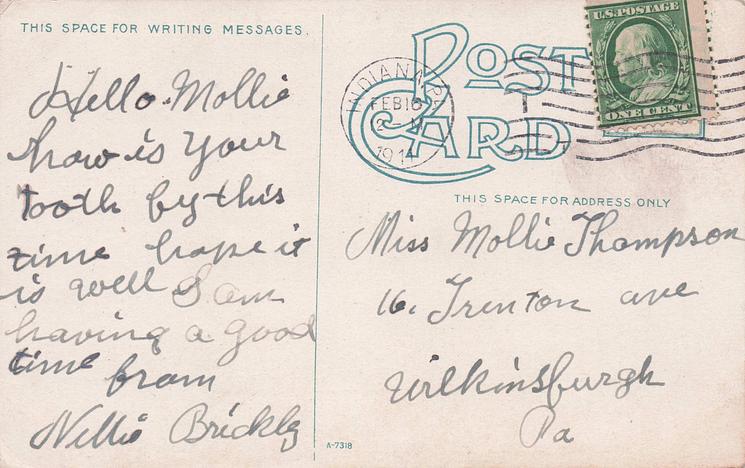 THIS SPACE FOR WRITING MESSAGES.
Hello Mollie
how is your
tooth by this
time hope it
is well I am
having a good
time
from
Nellie Brickly
POST
CARD
INDIANA, PA
FEB 16
2 - M
1911
U.S. POSTAGE
ONE CENT
THIS SPACE FOR ADDRESS ONLY
Miss Mollie Thompson
16. Trenton ave
Wilkinsburgh
Pa
A-7318